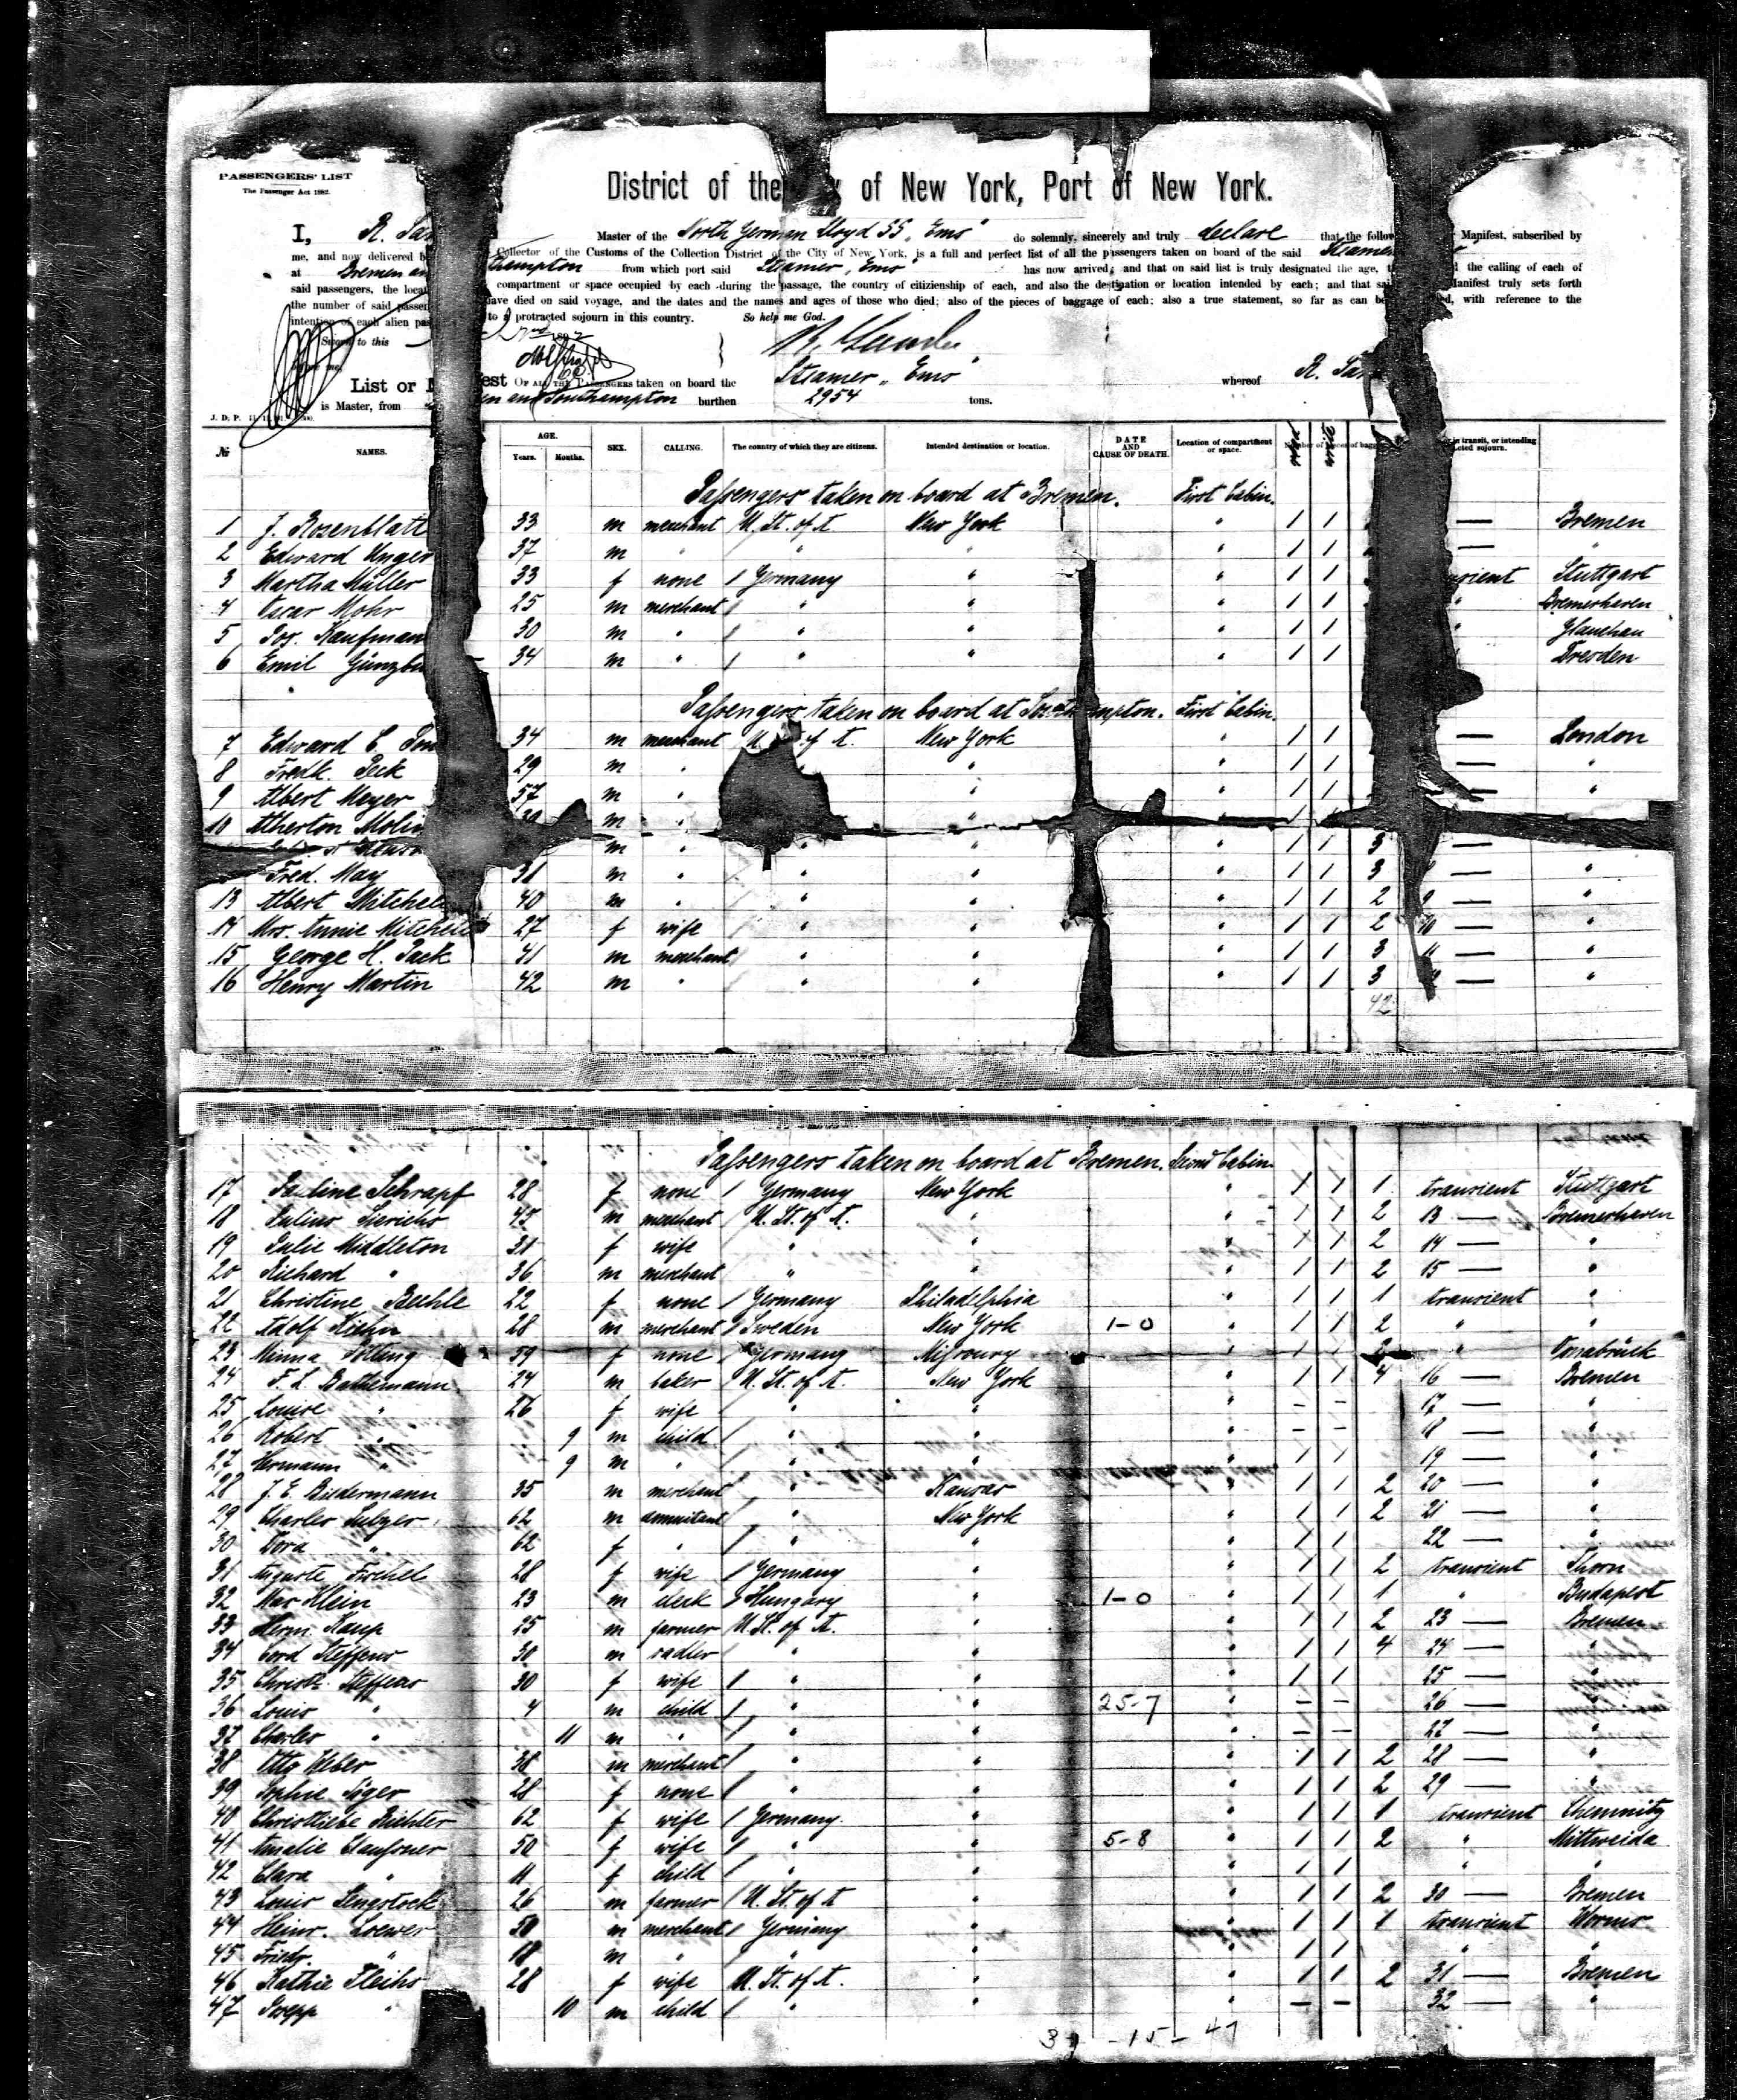 PASSENGERS' LIST
The Passenger Act 1882.
District of the of New York, Port of New York.
I, R. San Master of the North German Lloyd SS. "Ems" do solemnly, sincerely and truly declare that the follow Manifest, subscribed by
me, and now delivered b Collector of the Customs of the Collection District of the City of New York, is a full and perfect list of all the passengers taken on board of the said Steamer
at Bremen an thampton from which port said Steamer "Ems" has now arrived; and that on said list is truly designated the age, t the calling of each of
said passengers, the locat compartment or space occupied by each during the passage, the country of citizienship of each, and also the destination or location intended by each; and that sai Manifest truly sets forth
the number of said passen ave died on said voyage, and the dates and the names and ages of those who died; also of the pieces of baggage of each; also a true statement, so far as can be d, with reference to the
intention of each alien pas to a protracted sojourn in this country. So help me God.
Sworn to this 2nd 1892
List or M est OF ALL THE PASSENGERS taken on board the Steamer "Ems" whereof R. San
is Master, from en and Southampton burthen 2954 tons.
J. D. P.
№ NAMES. AGE. Years. Months. SEX. CALLING. The country of which they are citizens. Intended destination or location. DATE AND CAUSE OF DEATH. Location of compartment or space. Number of pieces of bagg in transit, or intending cted sojourn.
Passengers taken on board at Bremen. First Cabin.
1 J. Rosenblatt 33 m merchant U. St. of A New York " 1 1 — Bremen
2 Edward Unger 37 m " " " " 1 1 — "
3 Martha Müller 33 f none / Germany " " 1 1 nsient Stuttgart
4 Oscar Mohr 25 m merchant / " " " 1 1 " Bremerhaven
5 Jos. Kaufman 30 m " / " " " 1 1 " Glauchau
6 Emil Günzbu 34 m " / " " " 1 1 Dresden
Passengers taken on board at Southampton. First Cabin.
7 Edward C. 34 m merchant U. of A. New York " 1 1 — London
8 Fredk. Peck 29 m " " " " 1 1 — "
9 Albert Meyer 57 m " " 1 1 — "
10 Atherton Molin m " " 1 1
m " " " " 1 1 3 —
Fred. May 31 m " " " " 1 1 3 — "
13 Albert Mitchel 40 m " " " " 1 1 2 9 — "
14 Mrs. Annie Mitchell 27 f wife / " " " 1 1 2 10 — "
15 George H. Pack 41 m merchant / " " " 1 1 3 11 — "
16 Henry Martin 42 m " / " " " 1 1 3 — "
42
Passengers taken on board at Bremen. Second Cabin.
17 Pauline Schrapf 28 f none / Germany New York " 1 1 1 transient Stuttgart
18 Julius Sierichs 45 m merchant / U. St. of A. " " 1 1 2 13 — Bremerhaven
19 Julie Middleton 31 f wife " " " 1 1 2 14 — "
20 Richard " 36 m merchant " " " 1 1 2 15 — "
21 Christine Beehle 22 f none / Germany Philadelphia " 1 1 1 transient "
22 Adolf Kiehn 28 m merchant / Sweden New York 1-0 " 1 1 2 " "
23 Minna Pölling 39 f none / Germany Missoury " 1 1 2 " Osnabrück
24 F. L. Bathemann 24 m baker / U. St. of A. New York " 1 1 4 16 — Bremen
25 Louise " 26 f wife / " " " - - 17 — "
26 Robert " 9 m child / " " " - - 18 — "
27 Hermann " 9 m " / " " " 1 1 19 — "
28 J. E. Biedermann 35 m merchant / " Kansas " 1 1 2 20 — "
29 Charles Sulzer 62 m / " New York " 1 1 2 21 — "
30 Dora " 62 f " / " " " 22 — "
31 Auguste Fischel 28 f wife / Germany " " 1 1 2 transient Thorn
32 Max Klein 23 m clerk / Hungary " 1-0 " 1 1 1 " Budapest
33 Herm. Kamp 25 m farmer U. St. of A. " " 1 1 2 23 — Bremen
34 Cord Steffens 30 m sadler / " " " 1 1 4 24 — "
35 Christ. Steffens 30 f wife / " " " 1 1 25 — "
36 Louis " 4 m child / " " 25-7 " - - 26 — "
37 Charles " 11 m " / " " " - - 27 — "
38 Otto Weber 38 m merchant / " " " 1 1 2 28 — "
39 Sophie Siger 28 f none / " " " 1 1 2 29 — "
40 Christliebe Richter 62 f wife / Germany. " " 1 1 1 transient Chemnitz
41 Amalie Claussner 50 f wife / " " 5-8 " 1 1 2 " Mittweida
42 Clara " 11 f child / " " " 1 1 " "
43 Louis Sengstock 26 m farmer / U. St. of A " " 1 1 2 30 — Bremen
44 Heinr. Loewer 50 m merchant / Germany " " 1 1 1 transient Worms
45 Friedr. " 18 m " " " " 1 1 " "
46 Kathie Fleihs 28 f wife U. St. of A. " " 1 1 2 31 — Bremen
47 Josepp " 10 m child / " " " - - 32 — "
-15- 47